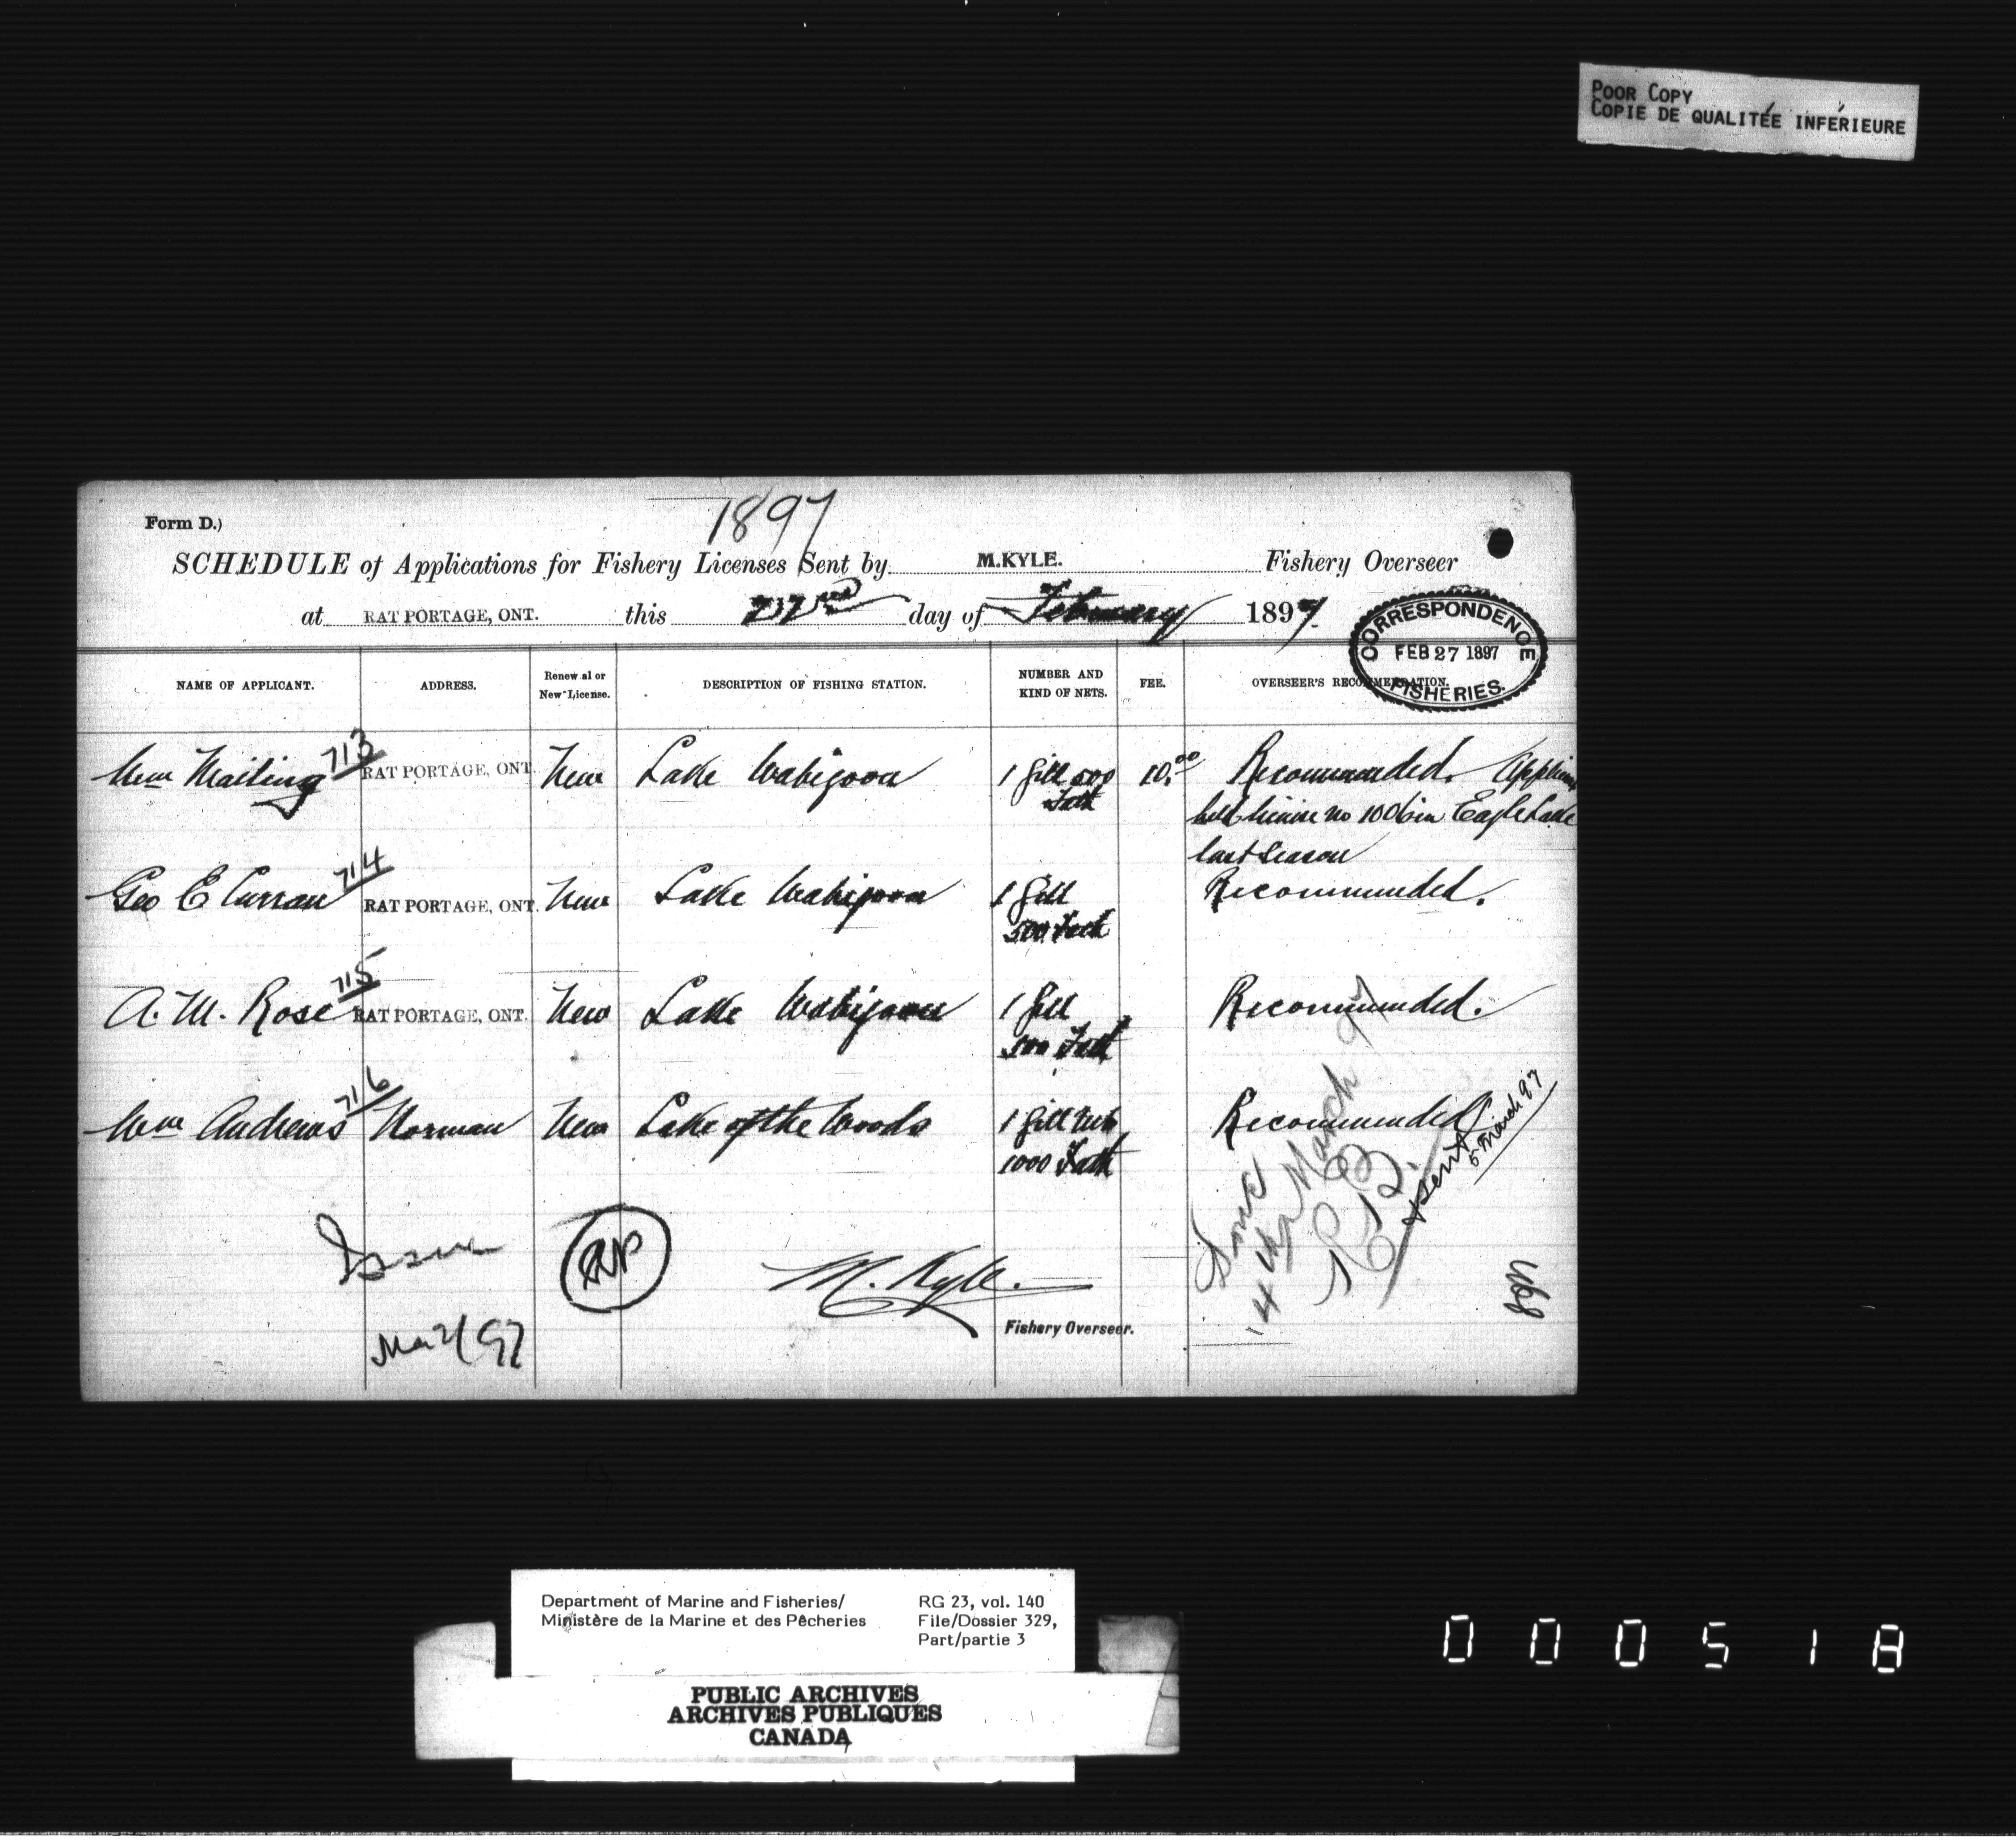 POOR COPY
COPIE DE QUALITÉE INFÉRIEURE
1897
Form D.)
SCHEDULE of Applications for Fishery Licenses Sent by M.KYLE. Fishery Overseer
at RAT PORTAGE, ONT. this 22nd day of February 1897.
CORRESPONDENCE
FEB 27 1897
FISHERIES.
NAME OF APPLICANT. ADDRESS. Renewal or New License. DESCRIPTION OF FISHING STATION. NUMBER AND KIND OF NETS. FEE. OVERSEER'S RECOMMENDATION.
713
Wm Mailing RAT PORTAGE, ONT. New Lake Wabigoon 1 Gill 500 10.00 Recommended.
Fath held license no 1006 in Eagle Lake
last season
714
Geo E Curran RAT PORTAGE, ONT. New Lake Wabigoon 1 Gill Recommended.
500 Fath
715
A. M. Rose RAT PORTAGE, ONT. New Lake Wabigoon 1 Gill Recommended.
500 Fath
716
Wm Andrews Norman New Lake of the Woods 1 Gill Recommended
1000 Fath
14th March 97
& sent
5 March 97
Issue
M. Kyle.
Fishery Overseer.
468
Department of Marine and Fisheries/
Ministère de la Marine et des Pêcheries
RG 23, vol. 140
File/Dossier 329,
Part/partie 3
PUBLIC ARCHIVES
ARCHIVES PUBLIQUES
CANADA
000518